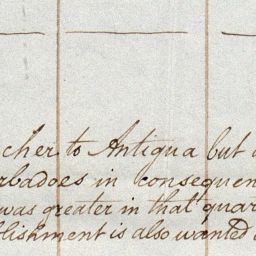 cher to Antigua but
rbadoes in consequen
was greater in that quar
lishment is also wanted